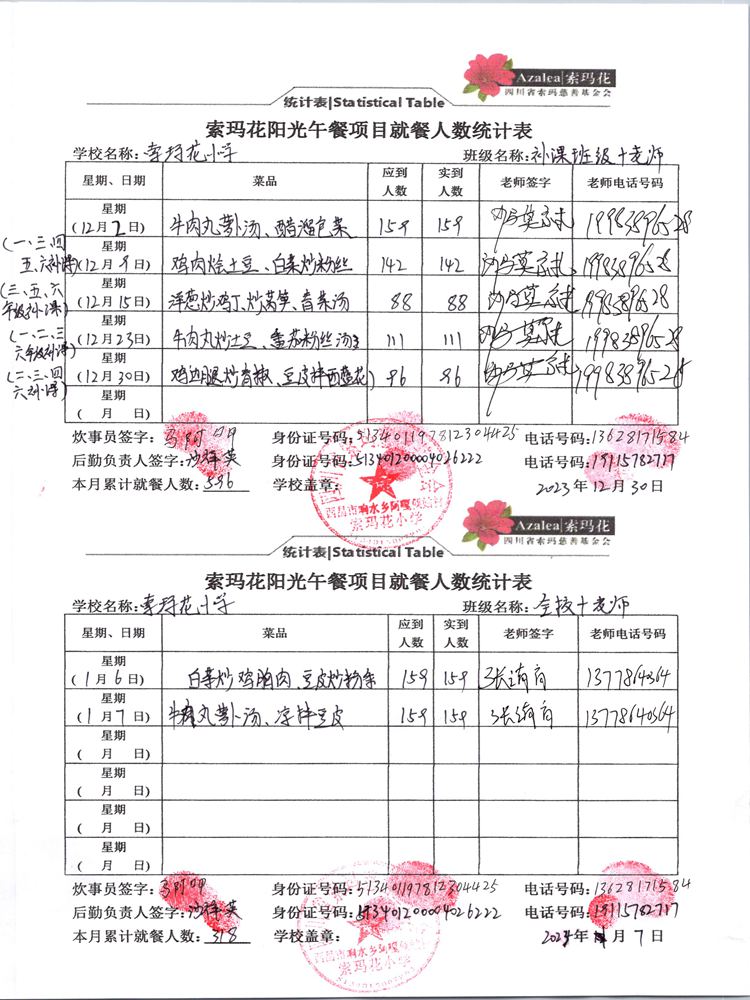 Azalea|索玛花
四川省索玛慈善基金会
统计表|Statistical Table
索玛花阳光午餐项目就餐人数统计表
学校名称:索玛花小学 班级名称:补课班级+老师
星期、日期 菜品 应到人数 实到人数 老师签字 老师电话号码
星期
(12月2日) 牛肉丸萝卜汤、醋溜包菜 159 159
(一、三、四
五、六补课)
星期
(12月9日) 鸡肉烩土豆、白菜炒粉丝 142 142
(三、五、六
年级补课)
星期
(12月15日) 洋葱炒鸡丁、炒莴笋、青菜汤 88 88
(一、二、三
六年级补课)
星期
(12月23日) 牛肉丸炒土豆、番茄粉丝汤 111 111
(二、三、四
六补课)
星期
(12月30日) 鸡边腿炒青椒、豆皮拌西兰花 96 96
星期
( 月 日)
炊事员签字: 身份证号码:513401197812304425 电话号码:13628171584
后勤负责人签字:沙祥英 身份证号码:513401200004026222 电话号码:19115782717
本月累计就餐人数:596 学校盖章: 2023年12月30日
西昌市响水乡阿嘎
索玛花小学
Azalea|索玛花
四川省索玛慈善基金会
统计表|Statistical Table
索玛花阳光午餐项目就餐人数统计表
学校名称:索玛花小学 班级名称:全校+老师
星期、日期 菜品 应到人数 实到人数 老师签字 老师电话号码
星期
(1月6日) 白菜炒鸡胸肉、豆皮炒粉条 159 159 1377864364
星期
(1月7日) 牛肉丸萝卜汤、凉拌豆皮 159 159 13778640364
星期
( 月 日)
星期
( 月 日)
星期
( 月 日)
星期
( 月 日)
炊事员签字: 身份证号码:513401197812304425 电话号码:13628171584
后勤负责人签字:沙祥英 身份证号码:513401200004026222 电话号码:19115782717
本月累计就餐人数:318 学校盖章: 2024年1月7日
西昌市响水乡阿嘎
索玛花小学